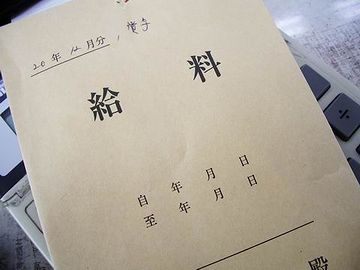 20年12月分, 賞与
給料
自 年 月 日
至 年 月 日
殿
÷